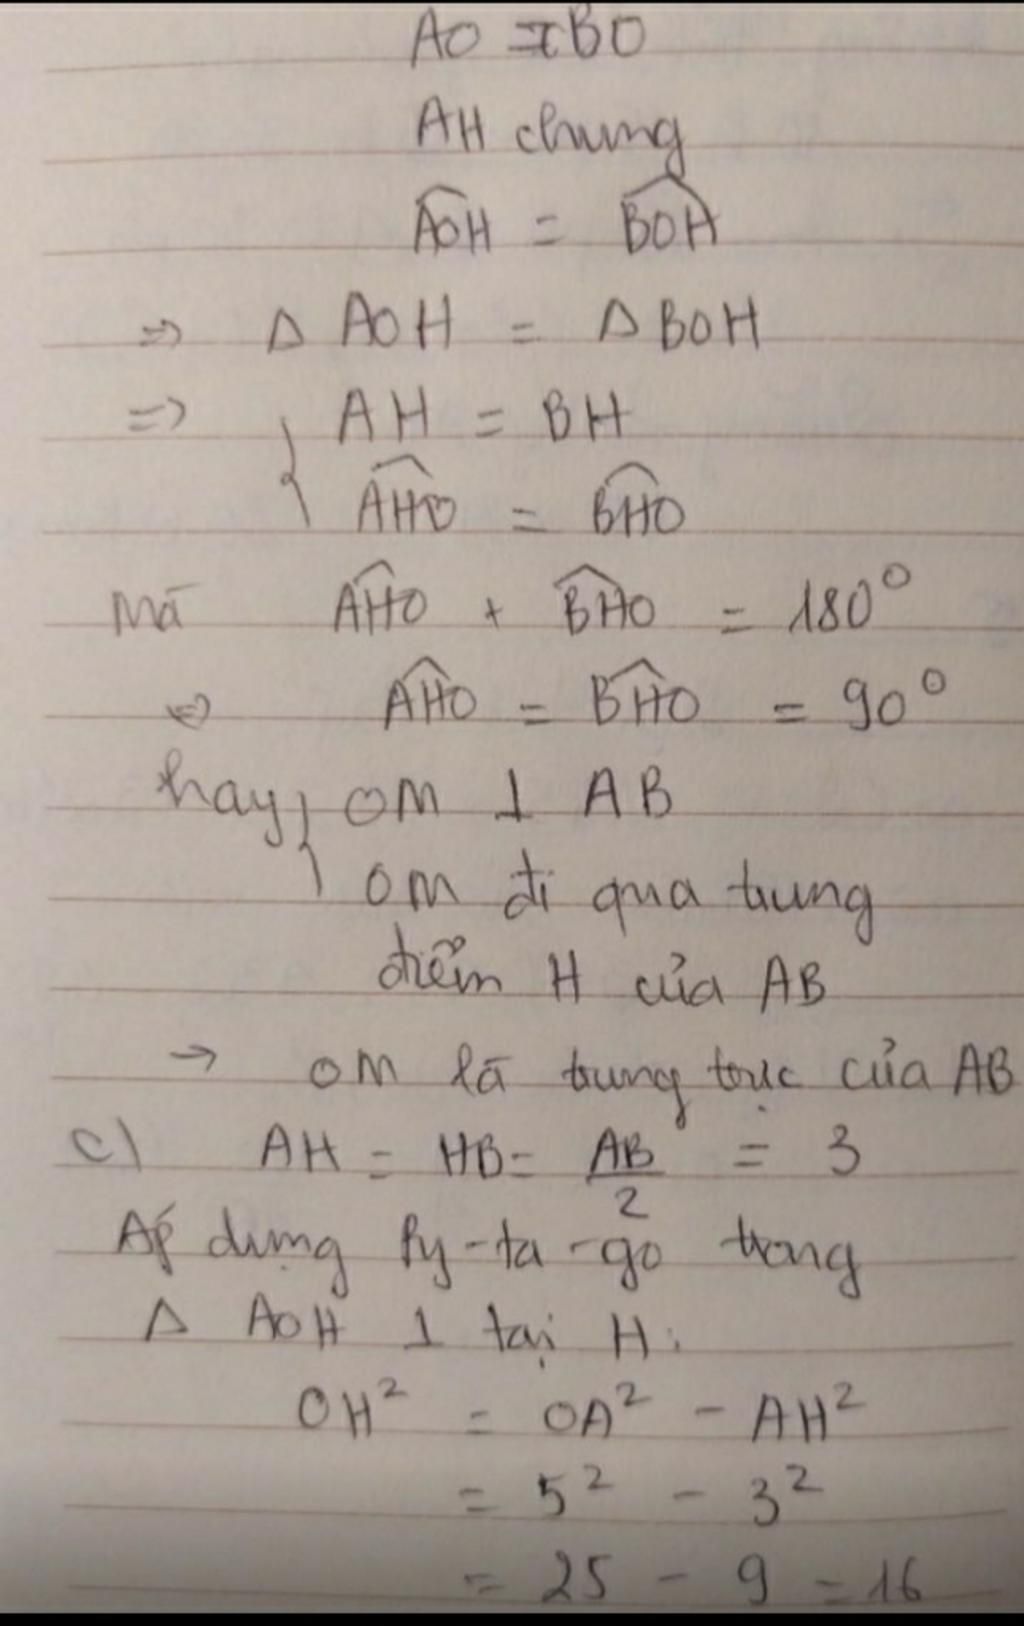 AO = BO
AH chung
\widehat{AOH} = \widehat{BOH}
=> Δ AOH = Δ BOH
=> { AH = BH
\widehat{AHO} = \widehat{BHO}
Mà \widehat{AHO} + \widehat{BHO} = 180°
=> \widehat{AHO} = \widehat{BHO} = 90°
hay { OM ⊥ AB
OM đi qua trung
điểm H của AB
→ OM là trung trực của AB
c) AH = HB = \frac{AB}{2} = 3
Áp dụng Py-ta-go trong
Δ AOH ⊥ tại H:
OH² = OA² - AH²
= 5² - 3²
= 25 - 9 = 16